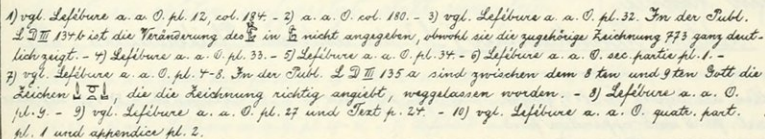 1) vgl. Lefébure a. a. O. pl. 12, col. 184. - 2) a. a. O. col. 180. - 3) vgl. Lefébure a. a. O. pl. 32. In der Publ.
L D III 134b ist die Veränderung des in nicht angegeben, obwohl sie die zugehörige Zeichnung 773 ganz deut-
lich zeigt. - 4) Lefébure a. a. O. pl. 33. - 5) Lefébure a. a. O. pl. 34. - 6) Lefébure a. a. O. sec. partie pl. 1. -
7) vgl. Lefébure a. a. O. pl. 4-8. In der Publ. L D III 135 a sind zwischen dem 8ten und 9ten Gott die
Zeichen , die die Zeichnung richtig angiebt, weggelassen worden. - 8) Lefébure a. a. O.
pl. 9. - 9) vgl. Lefébure a. a. O. pl. 27 und Text p. 24. - 10) vgl. Lefébure a. a. O. quatr. part.
pl. 1 und appendice pl. 2.